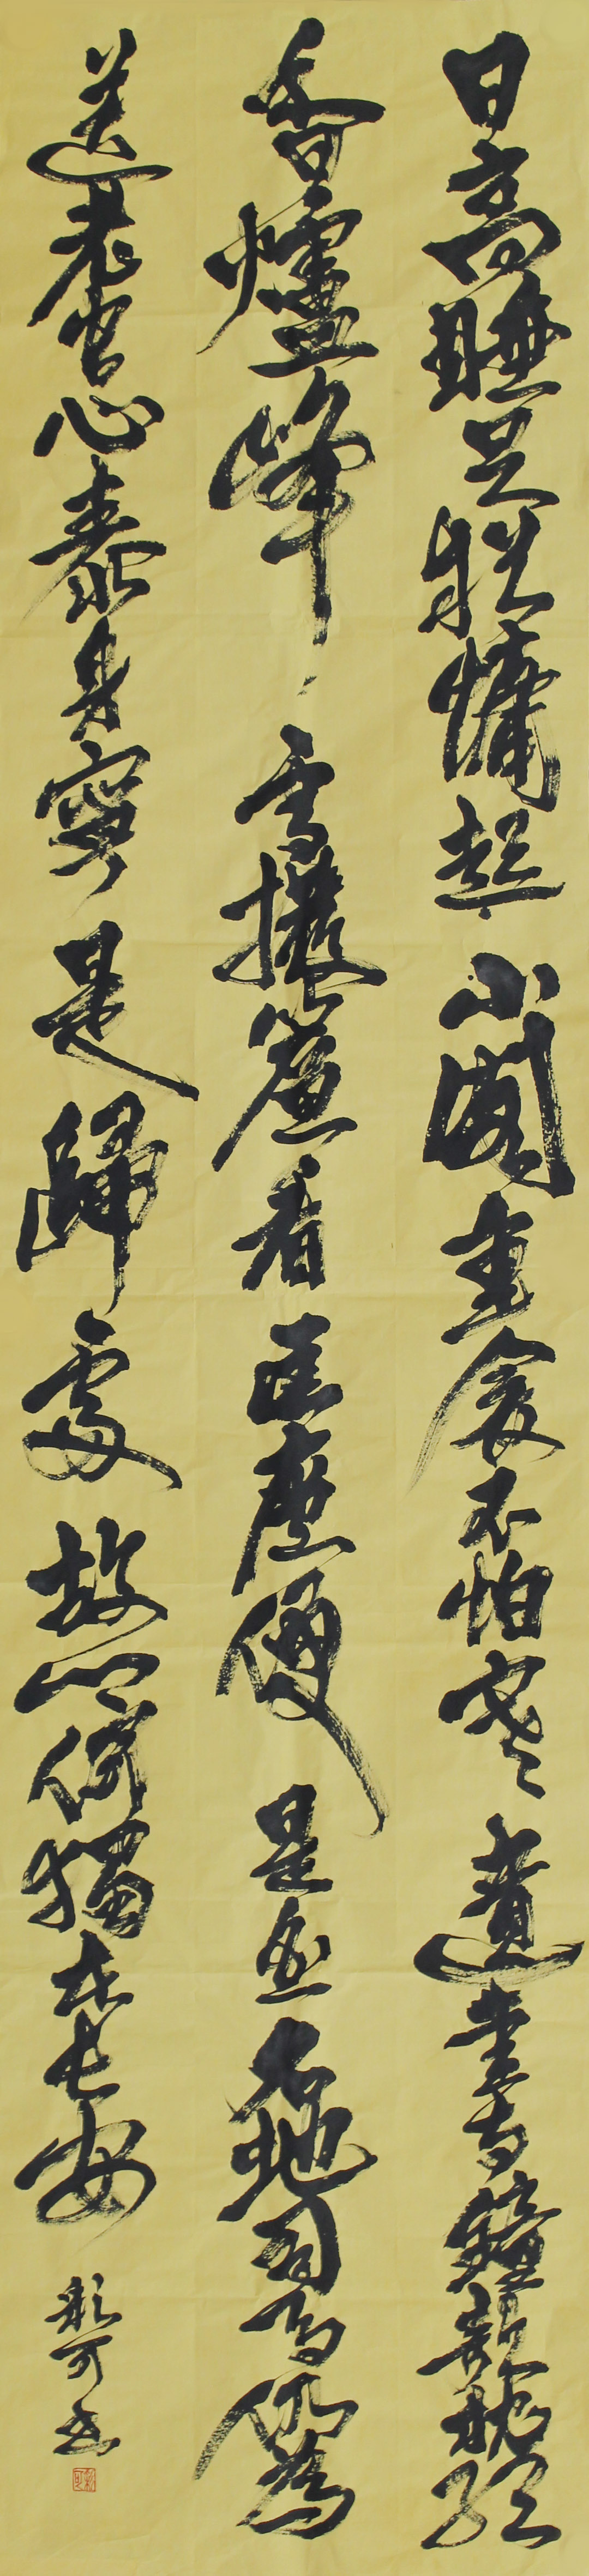 日高睡足猶慵起小閣重衾不怕寒遺愛寺鐘欹枕聽
香爐峰雪撥簾看匡廬便是逃名地司馬仍為
送老官心泰身寧是歸處故鄉何獨在長安
可書